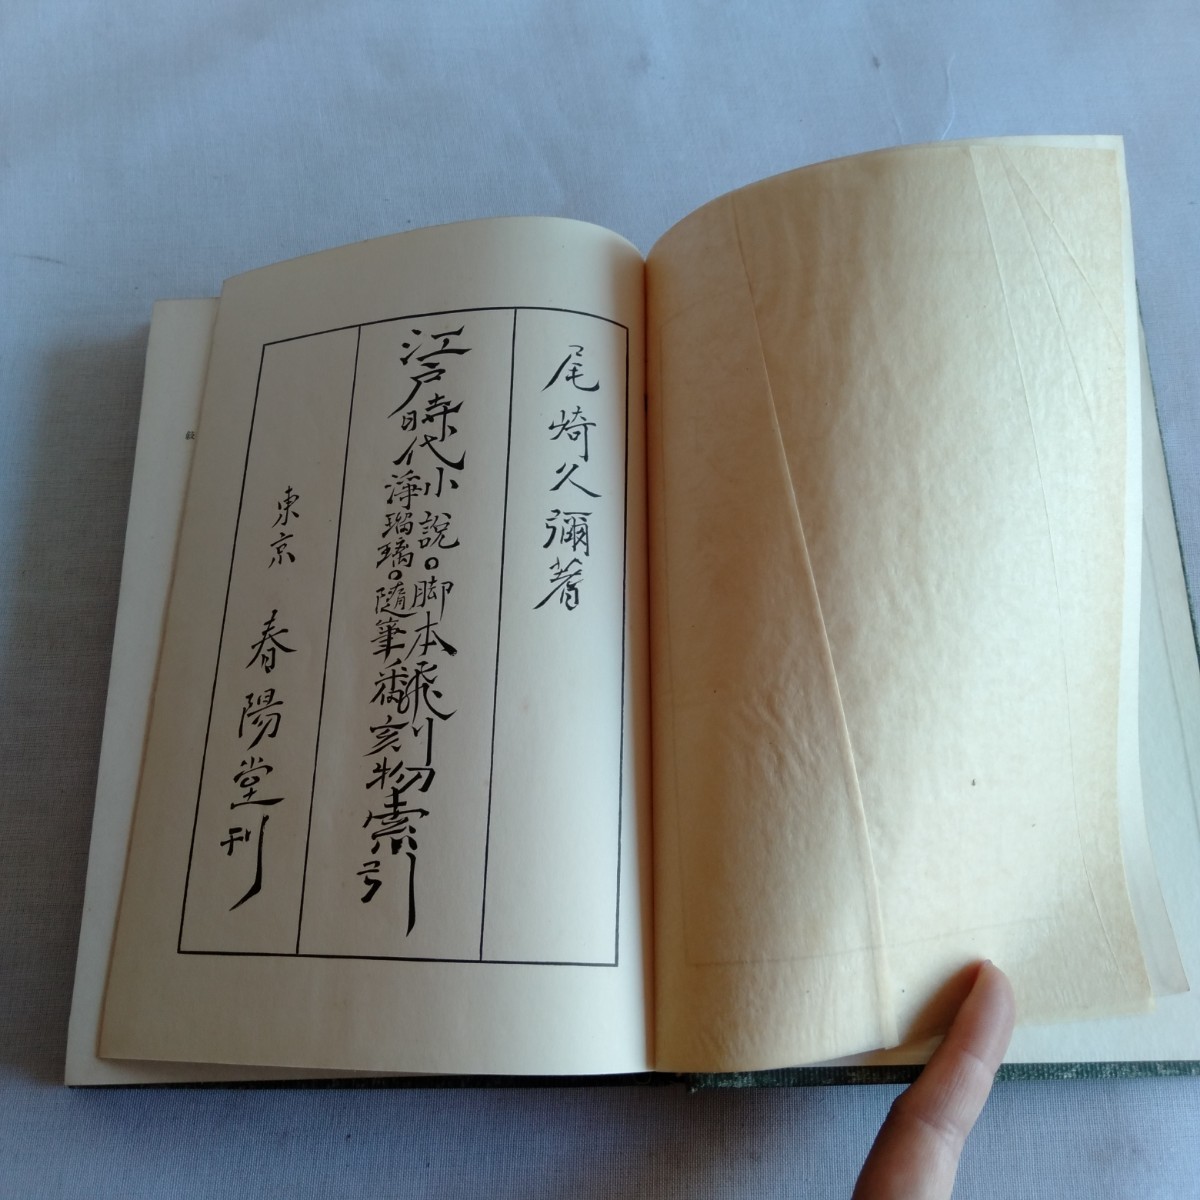 尾崎久彌著
江戸時代小說。脚本淨瑠璃。隨筆飜刻物索引
東京 春陽堂刊